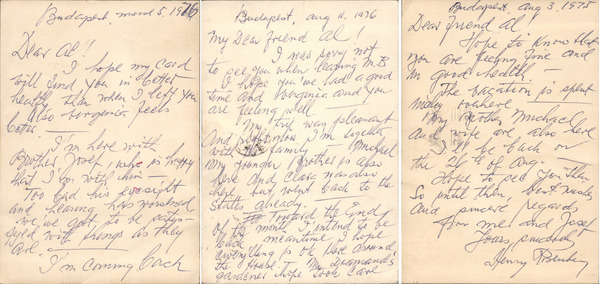 Budapest, march 5, 1976
Dear Al!
I hope my card
will find you in better
health than when I left you
Also Georginia feels
better —
I'm here with
Brother Josef, who is happy
that I'm with him —
Too bad his eyesight
and hearing has worsened
we got to be satis-
fyed with things as they
are —
I'm coming back
Budapest, Aug 11, 1976
My Dear Friend Al!
I was sorry not
to see you when leaving M.B
I hope you we had a good
time and Georginia and you
are feeling well
My trip was pleasant
And I'm together
with the family — Michael
My younger Brother is also
here And Clara was also
here but went back to the
States already —
Toward the End
of the month I intend to be
back meantime I hope
everything is ok here around
the House — Mr Diamond's
gardener hope took care
Budapest, Aug 3, 1975
Dear Friend Al
Hope to Know that
you are feeling fine and
in good health.
The vacation is spent
nicely
My Brother Michael
And wife are also here
I'll be back on
the 26th of Aug —
Hope to see you then
So until then best wishes
And sincere regards
from me and Josef
Yours sincerely
Henry Rosenberg